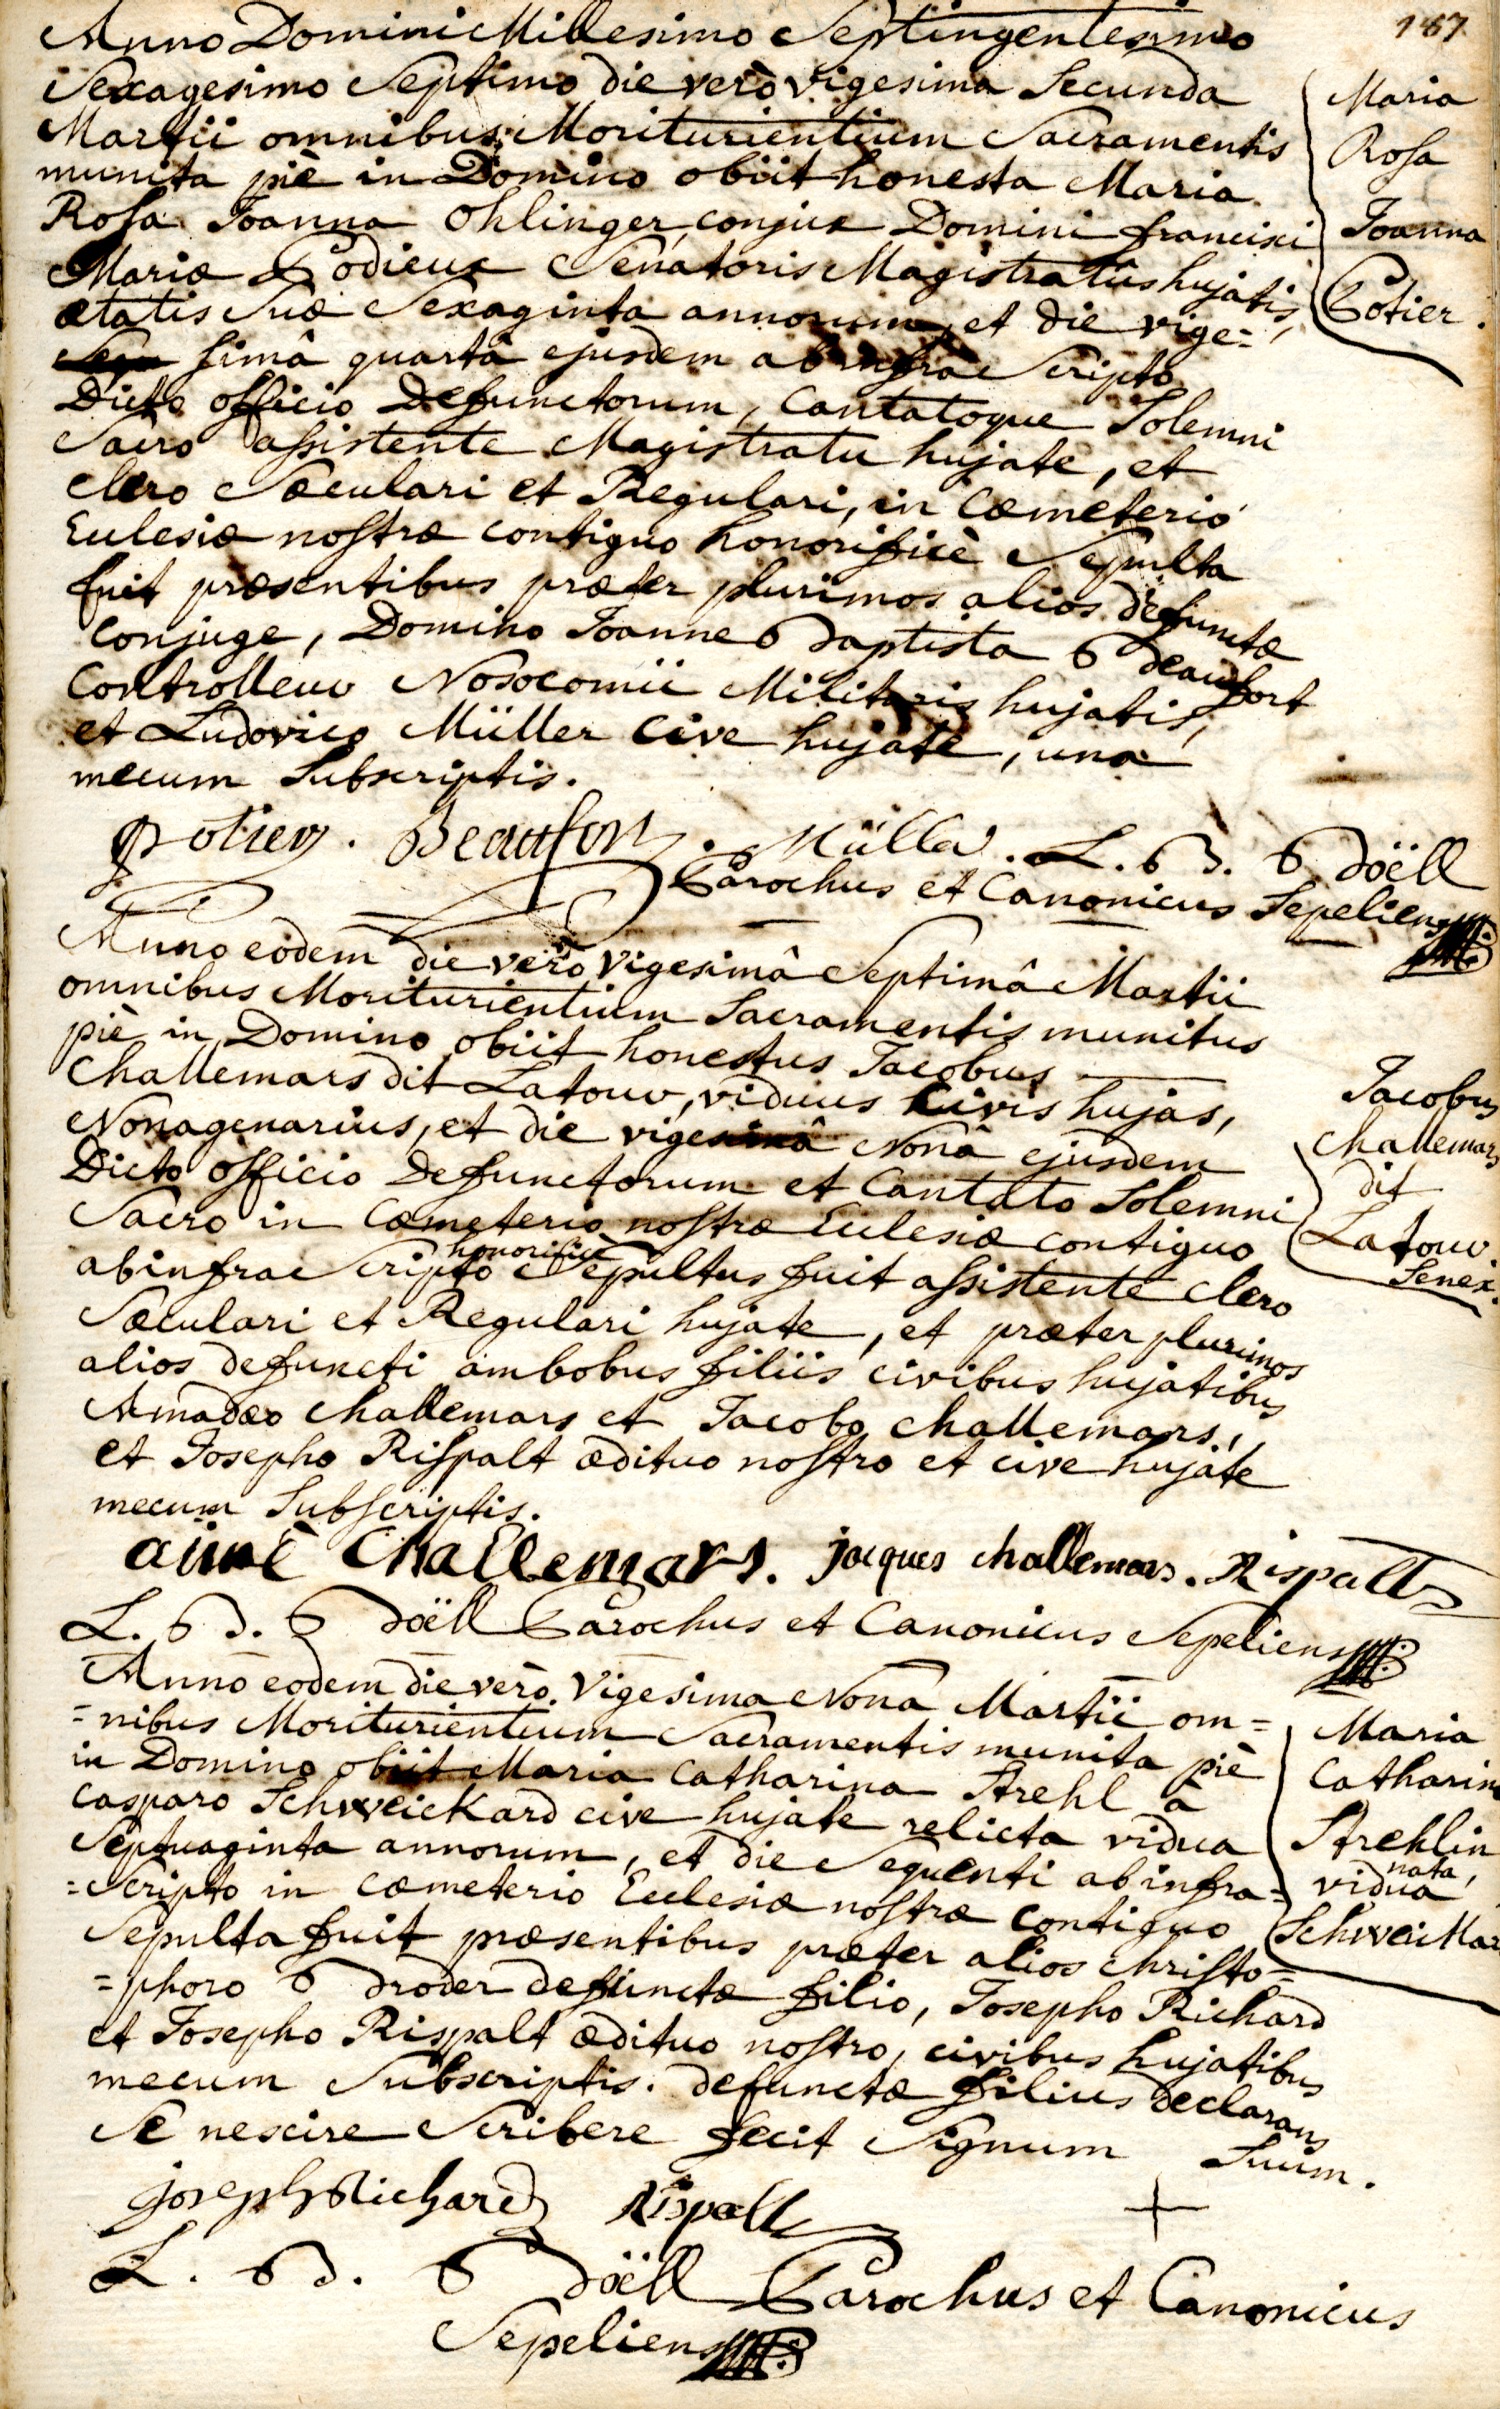 187
Anno Domini Millesimo Septingentesimo
Sexagesimo Septimo die verò vigesima Secunda
Martii omnibus Moriturientium Sacramentis
munita piè in Domino obiit honesta Maria
Rosa Joanna Ohlinger, conjux Domini francisci
Mariæ Senatoris Magistratûs hujatis,
ætatis Suæ Sexaginta annorum, et die vige=
simâ quartâ ejusdem ab infrà Scripto
Dicto officio Defunctorum, Cantatoque Solemni
Sacro assistente Magistratu hujate, et
clero Sæculari et Regulari, in Cœmeterio
Ecclesiæ nostræ contiguo honorificè Sepulta
fuit præsentibus præter plurimos alios defunctæ
conjuge, Domino Joanne Baptista Beaufort
Controlleur Nosocomii Militaris hujatis,
et Ludovico Müller Cive hujate, una
mecum Subscriptis.
Maria
Rosa
Joanna
Potier.
Potier. Beaufort. Müller. L. B. Böëll
Parochus et Canonicus Sepeliens
Anno eodem die verò Vigesimâ Septimâ Martii
omnibus Moriturientium Sacramentis munitus
piè in Domino obiit honestus Jacobus
Challemars dit Latour, viduus Civis hujas,
Nonagenarius, et die vigesimâ Nonâ ejusdem
Dicto officio Defunctorum et Cantato Solemni
Sacro in Cœmeterio nostræ Ecclesiæ contiguo
ab infra Scripto honorificè Sepultus fuit assistente Clero
Sæculari et Regulari hujate, et præter plurimos
alios defuncti ambobus filiis civibus hujatibus
Amadæo Challemars et Jacobo Challemars,
et Josepho Rispalt ædituo nostro et cive hujate
mecum Subscriptis.
Jacobus
Challemars
dit
Latour.
Senex.
aimè Challemars. jacques challemars. Rispalt
L. B. Böëll Parochus et Canonicus Sepeliens
Anno eodem die verò Vigesima Nona Martii om=
=nibus Moriturientium Sacramentis munita piè
in Domino obiit Maria Catharina Strehl à
Casparo Schweickard cive hujate relicta vidua
Septuaginta annorum, et die Sequenti ab infra=
=Scripto in cœmeterio Ecclesiæ nostræ contiguo
Sepulta fuit præsentibus præter alios Christo=
=phoro Broder defunctæ filio, Josepho Richard
et Josepho Rispalt ædituo nostro, civibus hujatibus
mecum Subscriptis. defunctæ filius declarans
Se nescire Scribere fecit Signum Suum.
Maria
Catharina
Strehlin
nata,
vidua
joseph Richard Rispalt +
L. B. Böëll Parochus et Canonicus
Sepeliens